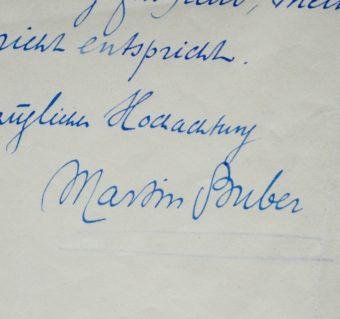 richt entspricht.
züglicher Hochachtung
Martin Buber